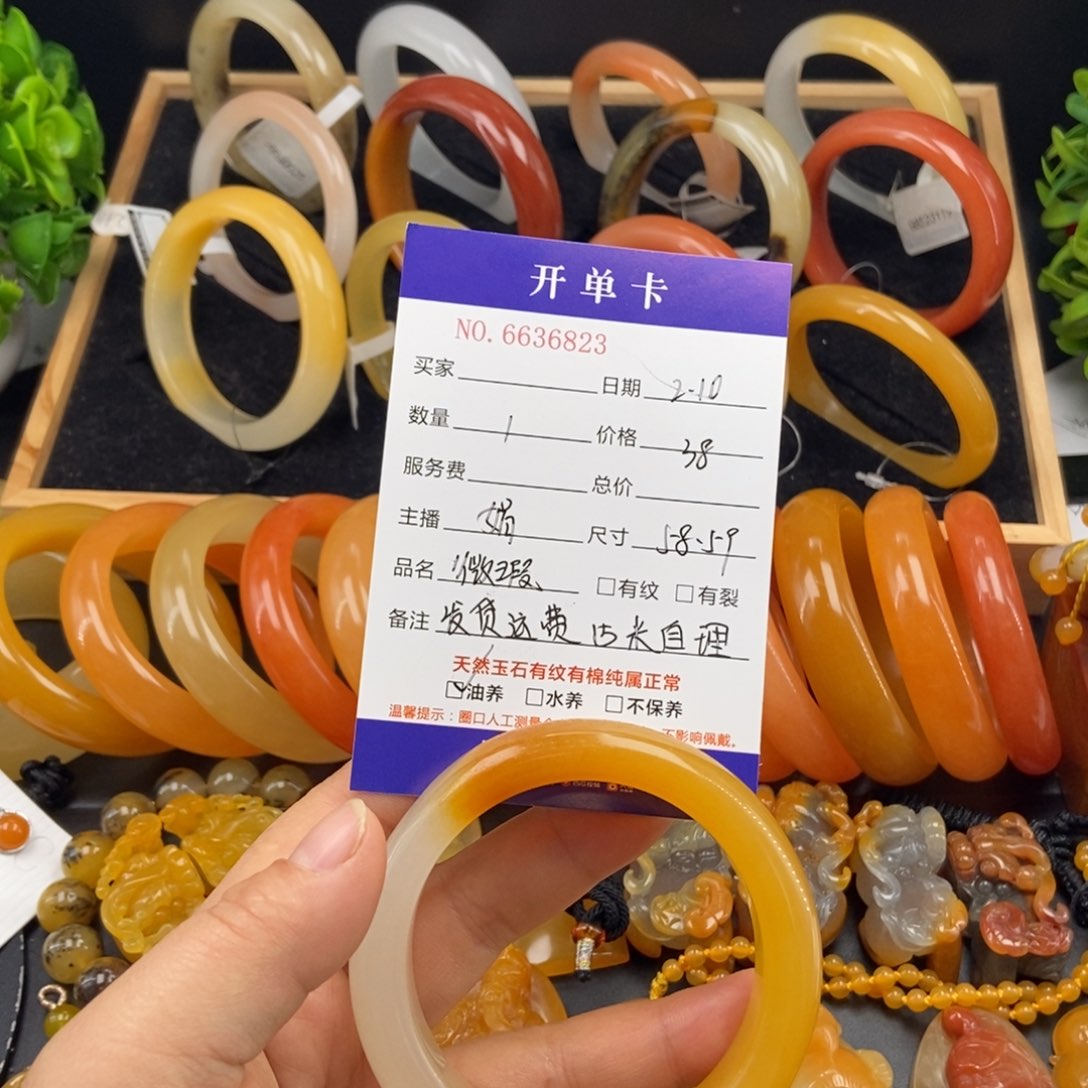 开单卡
NO. 6636823
买家 日期 2-10
数量 1 价格 38
服务费 总价
主播 娟 尺寸 58-59
品名 微瑕 □有纹 □有裂
备注 发货运费 自理
天然玉石有纹有棉纯属正常
☑油养 □水养 □不保养
温馨提示：圈口人工测量 不影响佩戴。